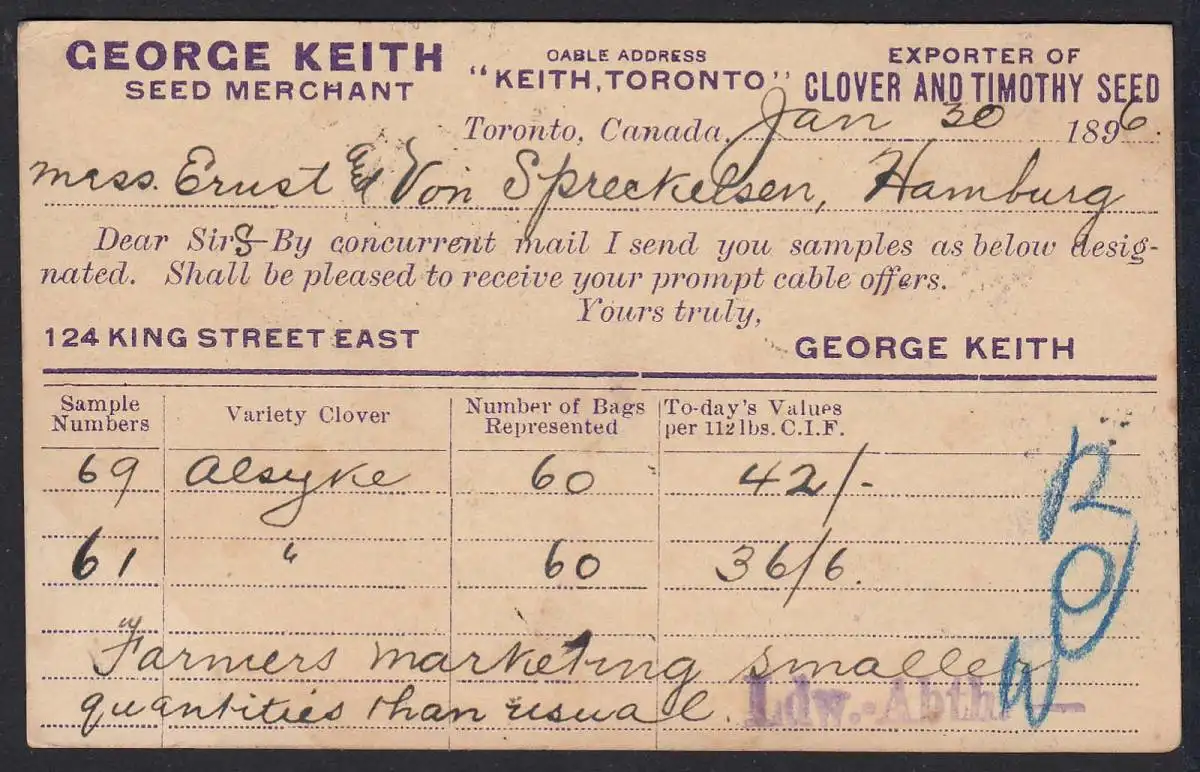 GEORGE KEITH
SEED MERCHANT
CABLE ADDRESS
"KEITH, TORONTO"
EXPORTER OF
CLOVER AND TIMOTHY SEED
Toronto, Canada, Jan 30 1896.
Mess. Ernst & Von Spreckelsen, Hamburg
Dear SirS—By concurrent mail I send you samples as below desig-
nated. Shall be pleased to receive your prompt cable offers.
Yours truly,
124 KING STREET EAST
GEORGE KEITH
Sample Numbers
Variety Clover
Number of Bags Represented
To-day's Values per 112 lbs. C.I.F.
69 Alsyke 60 42/-
61 " 60 36/6.
"Farmers marketing smaller
quantities than usual.
Ldw.-Abth.